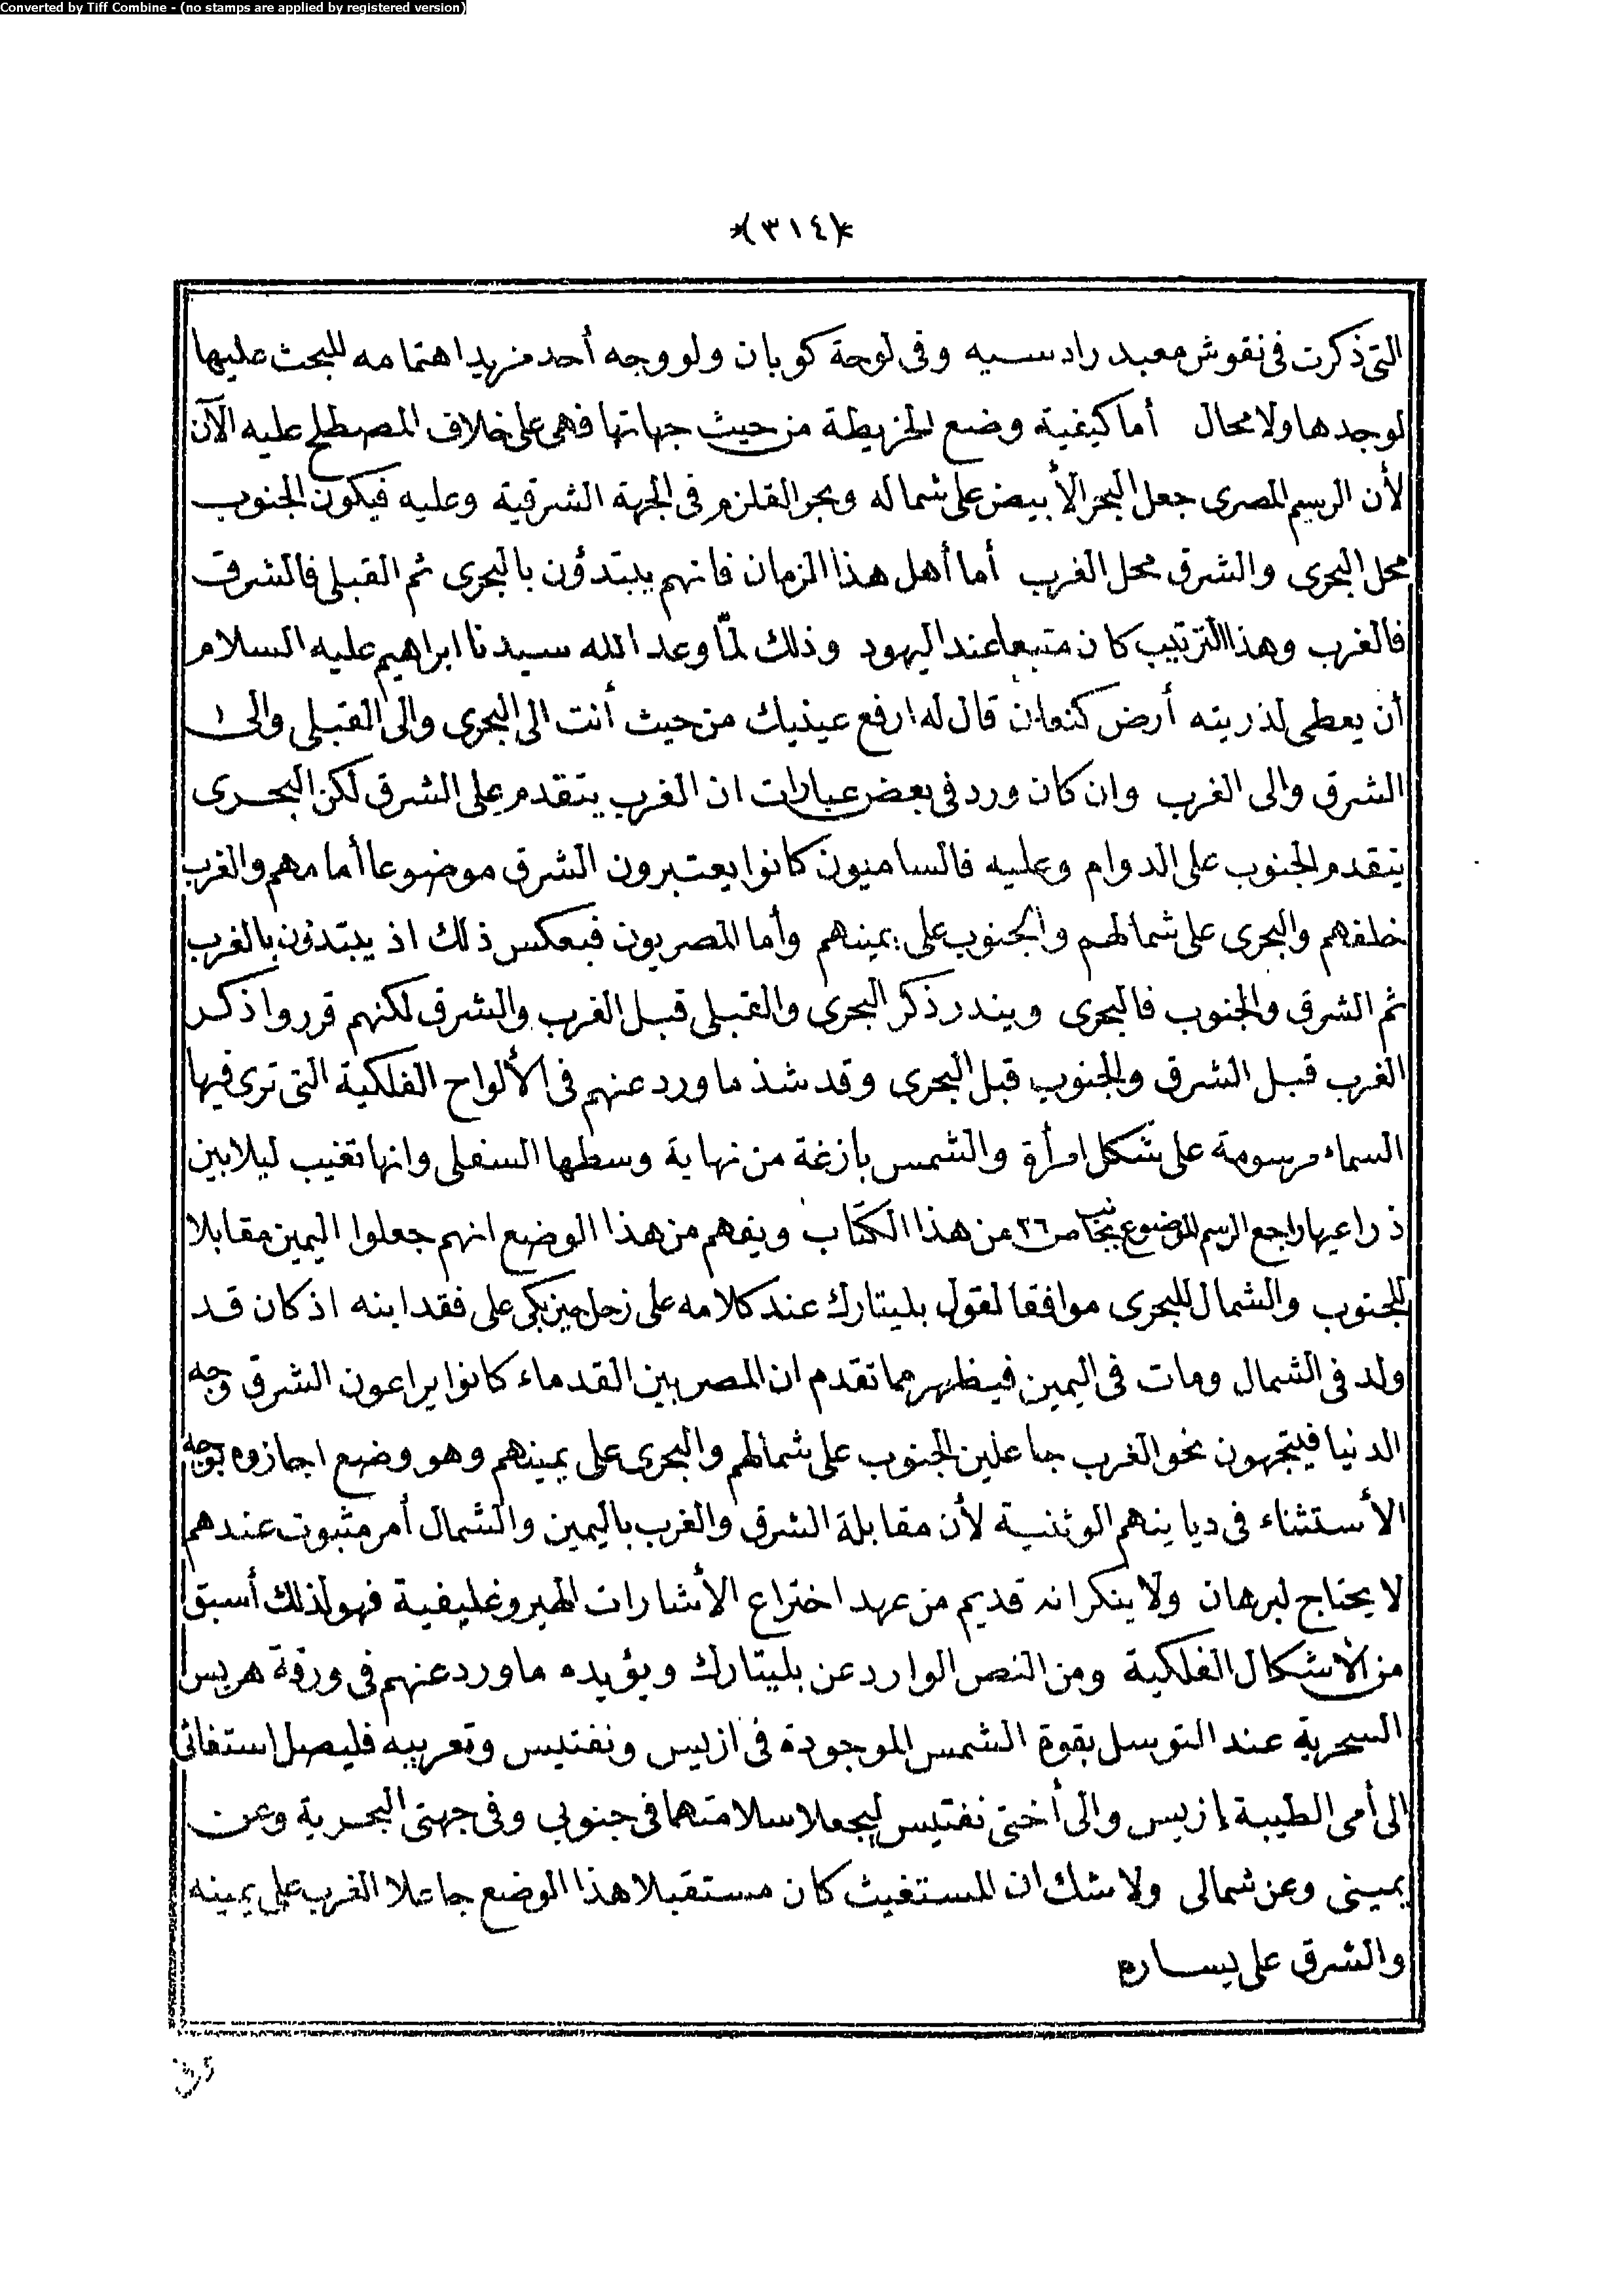 Converted by Tiff Combine - (no stamps are applied by registered version)
*(٣١٤)*
التى ذكرت فى نقوش معبد رادسيه وفى لوحة كوبان ولو وجه أحد مزيد اهتمامه للبحث عليها
لوجدها ولا محال أما كيفية وضع الخريطة من حيث جهاتها فهى على خلاف المصطلح عليه الآن
لأن الرسم المصرى جعل البحر الأبيض على شماله وبحر القلزم فى الجهة الشرقية وعليه فيكون الجنوب
محل البحرى والشرق محل الغرب أما أهل هذا الزمان فانهم يبتدؤن بالبحرى ثم القبلى فالشرق
فالغرب وهذا الترتيب كان متبعا عند اليهود وذلك لمّا وعد الله سيدنا ابراهيم عليه السلام
أن يعطى لذريته أرض كنعان قال له ارفع عينيك من حيث أنت الى البحرى والى القبلى والى
الشرق والى الغرب وان كان ورد فى بعض عبارات ان الغرب يتقدم على الشرق لكن البحرى
يتقدم الجنوب على الدوام وعليه فالساميون كانوا يعتبرون الشرق موضوعا أمامهم والغرب
خلفهم والبحرى على شمالهم والجنوب على يمينهم وأما المصريون فبعكس ذلك اذ يبتدؤن بالغرب
ثم الشرق والجنوب فالبحرى ويندر ذكر البحرى والقبلى قبل الغرب والشرق لكنهم قرروا ذكر
الغرب قبل الشرق والجنوب قبل البحرى وقد شذ ما ورد عنهم فى الألواح الفلكية التى ترى فيها
السماء مرسومة على شكل امرأة والشمس بازغة من نهاية وسطها السفلى وانها تغيب ليلا بين
ذراعيها راجع الرسم الموضوع بجانب ص ٢٦ من هذا الكتاب ويفهم من هذا الوضع انهم جعلوا اليمين مقابلا
للجنوب والشمال للبحرى موافقا لقول بليتارك عند كلامه على زحل حين بكى على فقد ابنه اذ كان قد
ولد فى الشمال ومات فى اليمين فيظهر مما تقدم ان المصريين القدماء كانوا يراعون الشرق وجه
الدنيا فيتجهون نحو الغرب جاعلين الجنوب على شمالهم والبحرى على يمينهم وهو وضع اجازوه بوجه
الأستثناء فى ديانيهم الوثنية لأن مقابلة الشرق والغرب باليمين والشمال أمر مثبوت عندهم
لا يحتاج لبرهان ولا ينكر انه قديم من عهد اختراع الأشارات الهيروغليفية فهو لذلك أسبق
من الأشكال الفلكية ومن النص الوارد عن بليتارك ويؤيده ما ورد عنهم فى ورقة هريس
السحرية عند التوسل بقوة الشمس الموجودة فى ازيس ونفتيس وتعريبه فليصل استغاثى
الى أمى الطيبة إزيس والى أختى نفتيس ليجعلا سلامتهما فى جنوبى وفى جهتى البحرية وعن
يمينى وعن شمالى ولا شك ان المستغيث كان مستقبلا هذا الوضع جاعلا الغرب على يمينه
والشرق على يساره